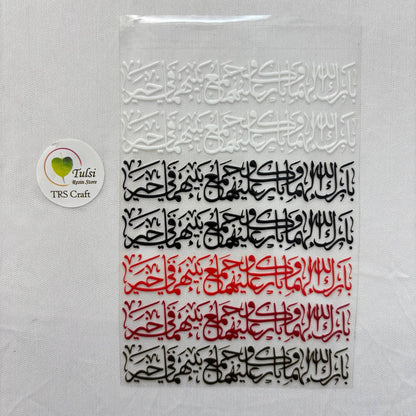 Tulsi
Resin Store
TRS Craft
بارك الله لهما وبارك عليهما وجمع بينهما في خير
بارك الله لهما وبارك عليهما وجمع بينهما في خير
بارك الله لهما وبارك عليهما وجمع بينهما في خير
بارك الله لهما وبارك عليهما وجمع بينهما في خير
بارك الله لهما وبارك عليهما وجمع بينهما في خير
بارك الله لهما وبارك عليهما وجمع بينهما في خير
بارك الله لهما وبارك عليهما وجمع بينهما في خير